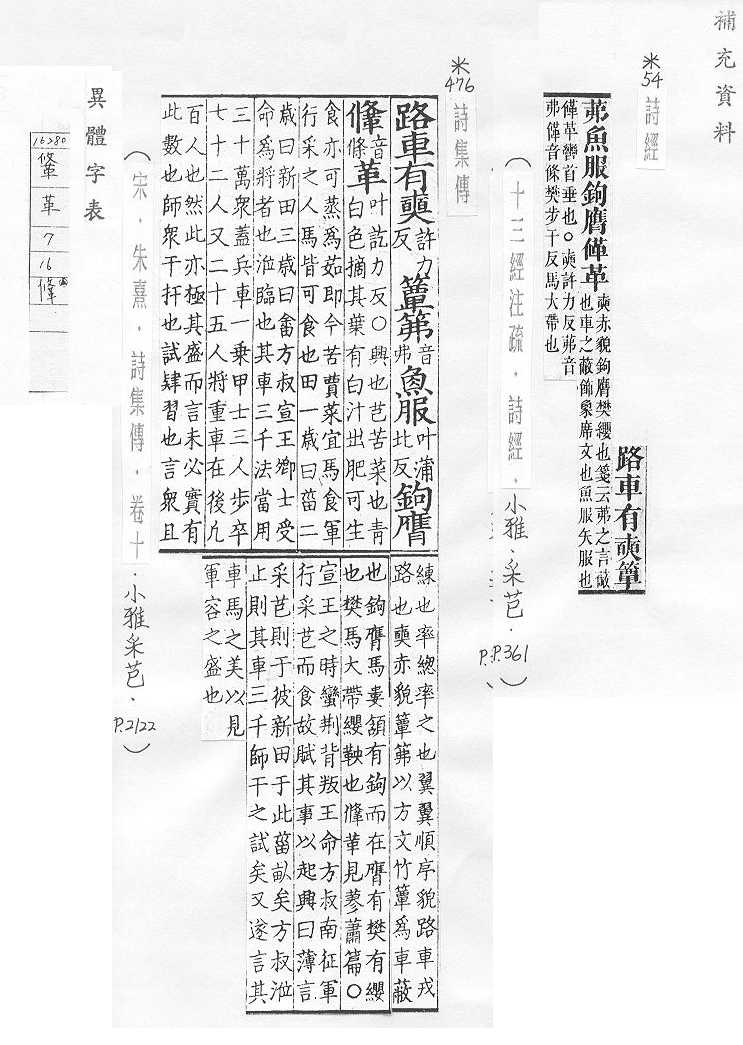 補充資料
米54
詩經
路車有奭簟
茀魚服鉤膺鞗革奭赤貌鉤膺樊纓也箋云茀之言蔽
也車之蔽飾象席文也魚服矢服也
鞗革轡首垂也○奭許力反茀音
弗鞗音條樊步干反馬大帶也
(十三經注疏．詩經．小雅、采芑．P.P.361)
米476
詩集傳
路車有奭許力反簟茀音弗魚服叶蒲比反鉤膺
鞗音條革叶訖力反○興也芑苦菜也青
白色摘其葉有白汁出肥可生
食亦可蒸為茹即今苦蕒菜宜馬食軍
行采之人馬皆可食也田一歲曰菑二
歲曰新田三歲曰畬方叔宣王卿士受
命為將者也涖臨也其車三千法當用
三十萬衆蓋兵車一乘甲士三人步卒
七十二人又二十五人將重車在後凡
百人也然此亦極其盛而言未必實有
此數也師衆干扞也試肄習也言衆且
練也率總率之也翼翼順序貌路車戎
路也奭赤貌簟茀以方文竹簟為車蔽
也鉤膺馬婁頷有鉤而在膺有樊有纓
也樊馬大帶纓鞅也鞗革見蓼蕭篇○
宣王之時蠻荊背叛王命方叔南征軍
行采芑而食故賦其事以起興曰薄言
采芑則于彼新田于此菑畝矣方叔涖
止則其車三千師干之試矣又遂言其
車馬之美以見
軍容之盛也
(宋．朱熹．詩集傳．卷十．小雅采芑．P.2122)
異體字表
16280
鞗
革
7
16